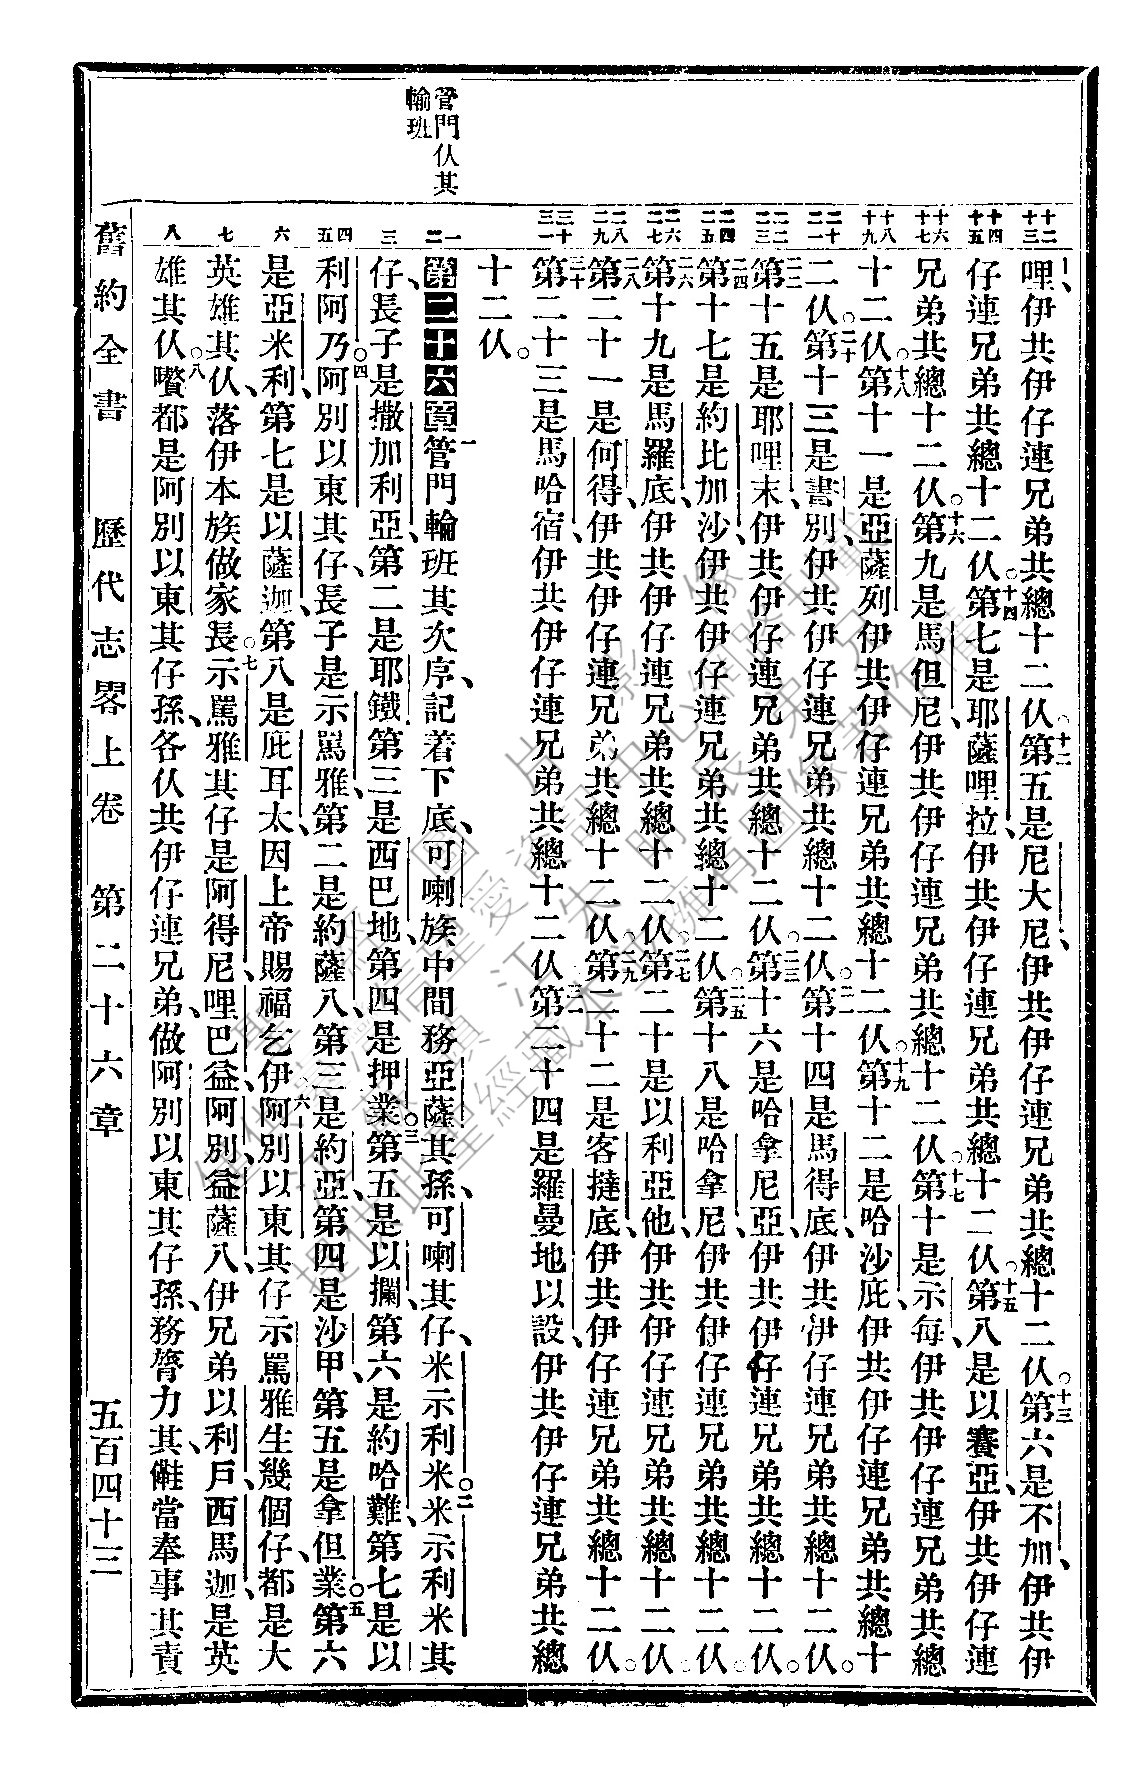 管門仫其
輪班
哩、伊共伊仔連兄弟共總十二仫。十二第五是尼大尼、伊共伊仔連兄弟共總十二仫。十三第六是不加、伊共伊
仔連兄弟共總十二仫。十四第七是耶薩哩拉、伊共伊仔連兄弟共總十二仫。十五第八是以賽亞、伊共伊仔連
兄弟共總十二仫。十六第九是馬但尼、伊共伊仔連兄弟共總十二仫。十七第十是示每、伊共伊仔連兄弟共總
十二仫。十八第十一是亞薩列、伊共伊仔連兄弟共總十二仫。十九第十二是哈沙庇、伊共伊仔連兄弟共總十
二仫。二十第十三是書別、伊共伊仔連兄弟共總十二仫。二一第十四是馬得底、伊共伊仔連兄弟共總十二仫。
二二第十五是耶哩末、伊共伊仔連兄弟共總十二仫。二三第十六是哈拿尼亞、伊共伊仔連兄弟共總十二仫。
二四第十七是約比加沙、伊共伊仔連兄弟共總十二仫。二五第十八是哈拿尼、伊共伊仔連兄弟共總十二仫。
二六第十九是馬羅底、伊共伊仔連兄弟共總十二仫。二七第二十是以利亞他、伊共伊仔連兄弟共總十二仫。
二八第二十一是何得、伊共伊仔連兄弟共總十二仫。二九第二十二是客撻底、伊共伊仔連兄弟共總十二仫。
三十第二十三是馬哈宿、伊共伊仔連兄弟共總十二仫。三一第二十四是羅曼地以設、伊共伊仔連兄弟共總
十二仫。
第二十六章 一管門輪班其次序、記着下底、可喇族中間務亞薩其孫、可喇其仔、米示利米。二米示利米其
仔、長子是撒加利亞、第二是耶鐵、第三是西巴地、第四是押業、三第五是以攔、第六是約哈難、第七是以
利阿乃。四阿別以東其仔、長子是示罵雅、第二是約薩八、第三是約亞、第四是沙甲、第五是拿但業。五第六
是亞米利、第七是以薩迦、第八是庇耳太、因上帝賜福乞伊。六阿別以東其仔示罵雅生幾個仔、都是大
英雄其仫、落伊本族做家長。七示罵雅其仔是阿得尼、哩巴益、阿別益薩八、伊兄弟以利戶、西馬迦、是英
雄其仫。八嚽都是阿別以東其仔孫、各仫共伊仔連兄弟、做阿別以東其仔孫、務膂力其、儺當奉事其責
舊約全書 歷代志畧上卷 第二十六章 五百四十三